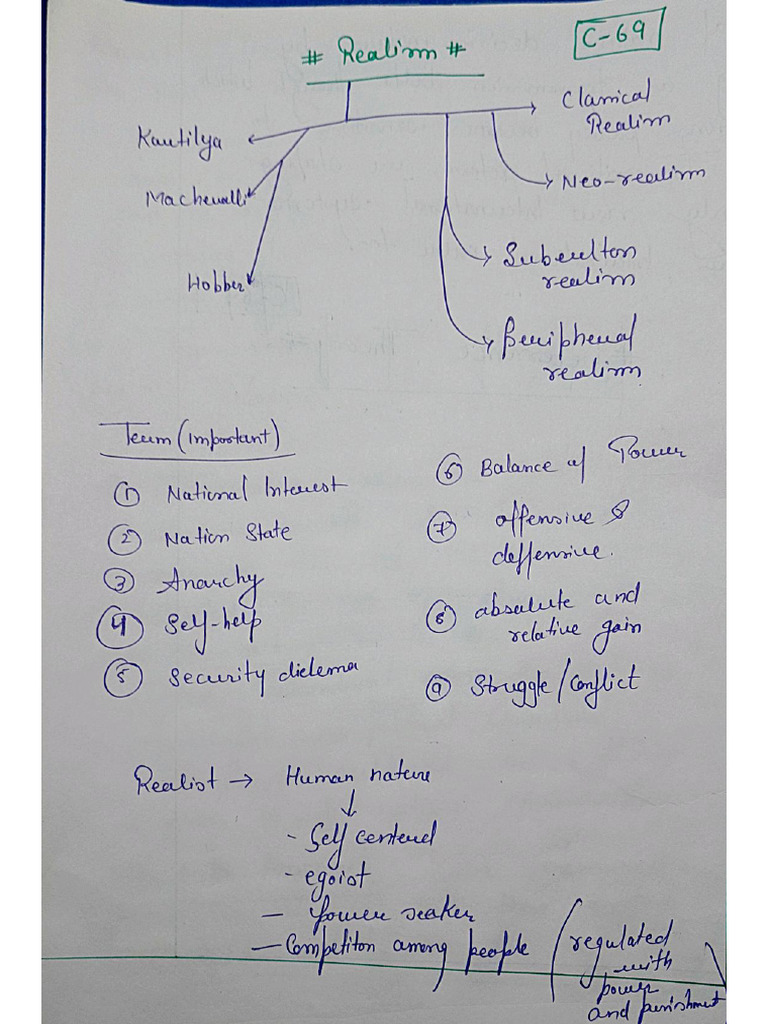 # Realism #
C-69
Kautilya
Machevalli
Hobbes
Classical
Realism
Neo-realism
Subeulton
realism
Peripheral
realism
Term (important)
① National Interest
② Nation State
③ Anarchy
④ Self-help
⑤ Security dielema
⑥ Balance of Power
⑦ offensive &
deffensive.
⑧ absalute and
relative gain
⑨ Struggle/Conflict
Realist → Human nature
↓
- Self centered
- egoist
- Power seaker
- Competiton among people (regulated
with
power
and punishment)